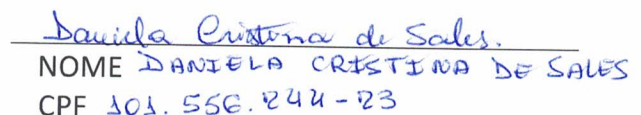 Daniela Cristina de Sales.
NOME DANIELA CRISTINA DE SALES
CPF 101.556.244-23